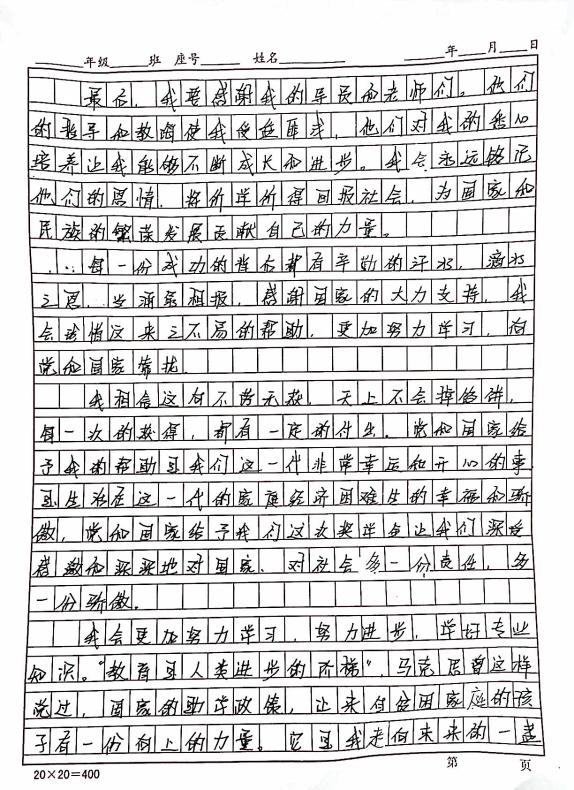 年级 班 座号 姓名 年 月 日
最后，我要感谢我的导员和老师们。他们
的指导和教诲使我受益匪浅，他们对我的悉心
培养让我能够不断成长和进步。我会永远铭记
他们的恩情，将所学所得回报社会，为国家和
民族的繁荣发展贡献自己的力量。
每一份成功的背后都有辛勤的汗水，滴水
之恩，当涌泉相报，感谢国家的大力支持，我
会珍惜这来之不易的帮助，更加努力学习，向
党和国家靠拢。
我相信这句不劳无获，天上不会掉馅饼，
每一次的获得，都有一定的付出。党和国家给
予我的帮助是我们这一代非常幸运和开心的事
是生活在这一代的家庭经济困难生的幸福和骄
傲，党和国家给予我们这次奖学金让我们深受
感激和深深地对国家、对社会多一份责任，多
一份骄傲。
我会更加努力学习，努力进步，学好专业
知识。"教育是人类进步的阶梯"，马克思曾这样
说过，国家的助学政策，让来自贫困家庭的孩
子有一份向上的力量。它是我走向未来的一盏
20×20=400 第 页